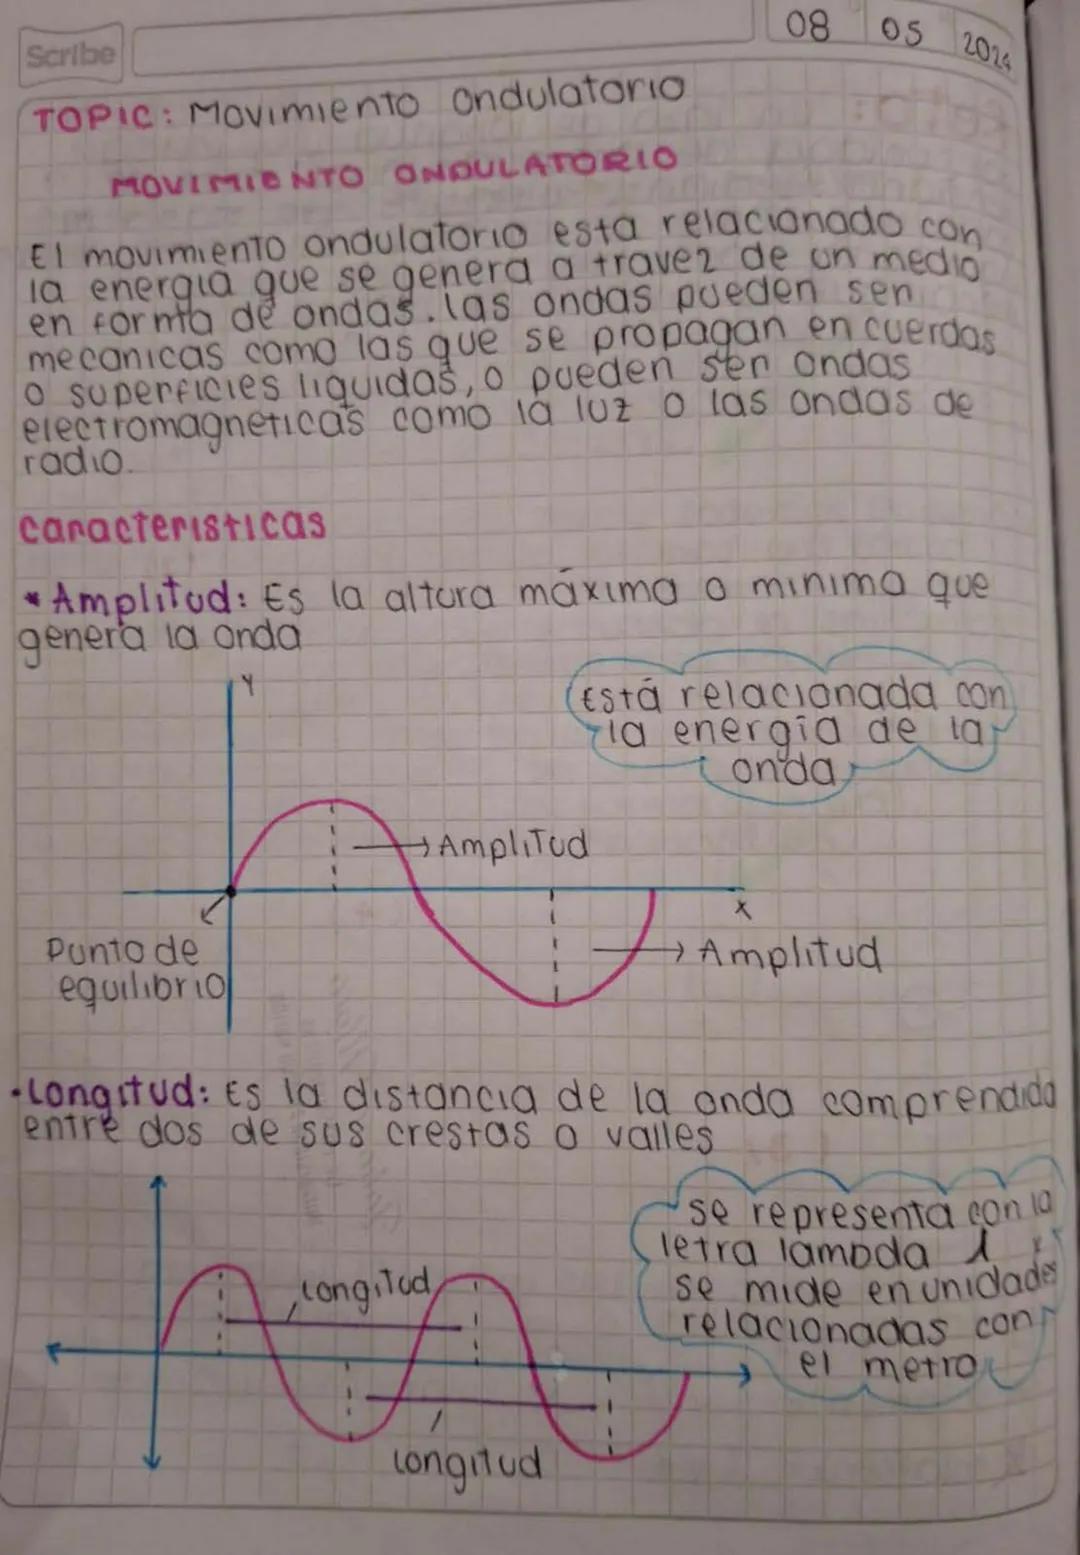 Scribe
08 05 2024
TOPIC: Movimiento ondulatorio
MOVIMIENTO ONDULATORIO
El movimiento ondulatorio esta relacionado con
la energia que se genera a travez de un medio
en forma de ondas. las ondas pueden ser
mecanicas como las que se propagan en cuerdas
o superficies liquidas, o pueden ser ondas
electromagneticas como la luz o las ondas de
radio.
caracteristicas
* Amplitud: Es la altura máxima o minima que
genera la onda
Y
Está relacionada con
la energía de la
onda
Amplitud
X
Punto de
equilibrio
Amplitud
• Longitud: Es la distancia de la onda comprendida
entre dos de sus crestas o valles
se representa con la
letra lambda λ y
se mide en unidades
relacionadas con
el metro
Longitud
Longitud